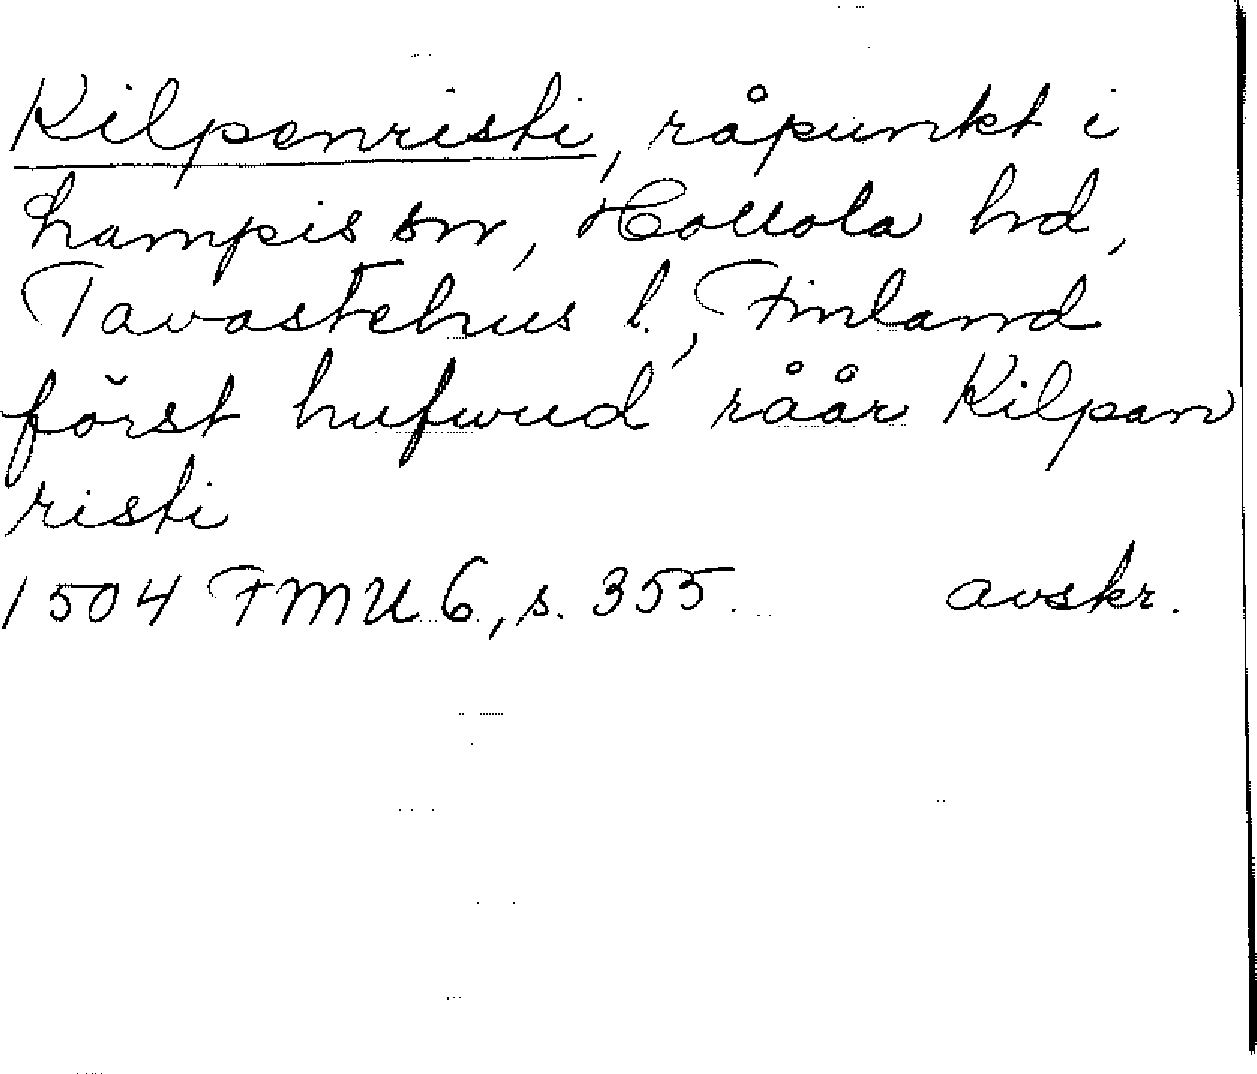 Kilpenristi, råpunkt i
Lampis sn, Hollola hd,
Tavastehus l., Finland
först hufwud råår Kilpan
risti
1504 FMU 6, s. 355. avskr.